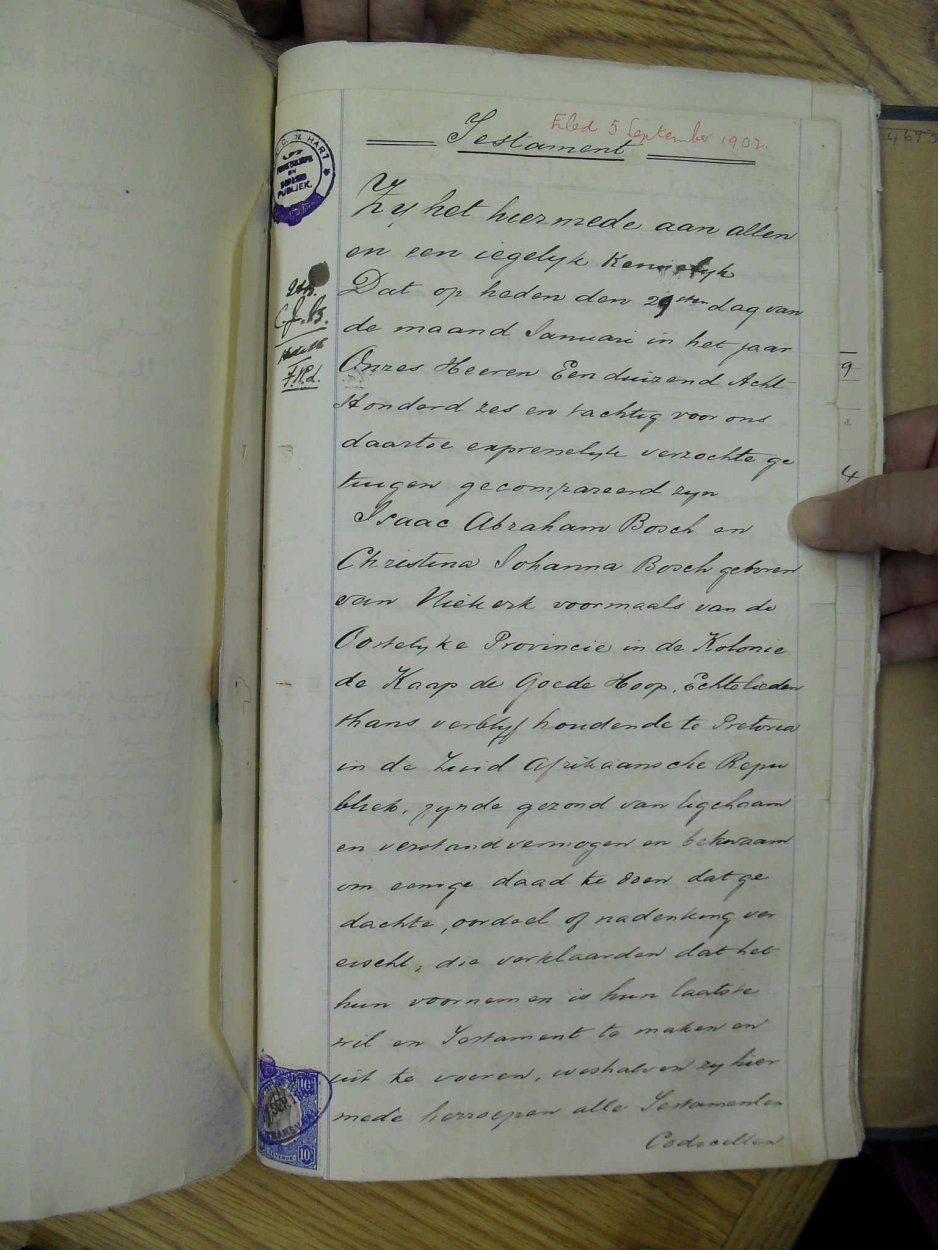 Testament
Filed 5 September 1902.
Zy het hiermede aan allen
en een iegelyk Kennelyk
Dat op heden den 29sten dag van
de maand Januari in het jaar
Onzes Heeren Een duizend Acht
Honderd zes en tachtig voor ons
daartoe expresselyk verzochte ge
tuigen gecompareerd zyn
Isaac Abraham Bosch en
Christina Johanna Bosch geboren
van Niekerk voormaals van de
Oostelyke Provincie in de Kolonie
de Kaap de Goede Hoop, Echtelieden
thans verblyf houdende te Pretoria
in de Zuid Afrikaansche Repu
bliek, zynde gezond van ligchaam
en verstand vermogen en bekwaam
om eenige daad te doen dat ge
dachte, oordeel of nadenking ver
eischt, die verklaarden dat het
hun voornemen is hun laatste
wil en Testament te maken en
uit te voeren, weshalven zy hier
mede herroepen alle Testamenten
Codicellen
HART
PUBLIEK.
C.J.B.
9
4
DEATH NO
469